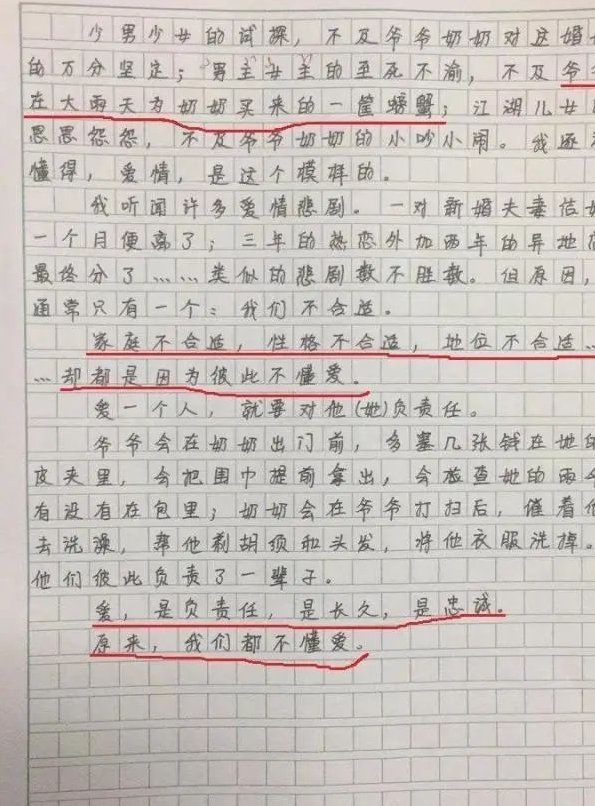 少男少女的试探，不及爷爷奶奶对这婚
的万分坚定；男主女主的至死不渝，不及爷
在大雨天为奶奶买来的一筐螃蟹；江湖儿女
恩恩怨怨，不及爷爷奶奶的小吵小闹。我还
懂得，爱情，是这个模样的。
我听闻许多爱情悲剧。一对新婚夫妻结
一个月便离了；三年的热恋外加两年的异地
最终分了……类似的悲剧数不胜数。但原因，
通常只有一个：我们不合适。
家庭不合适，性格不合适，地位不合适…
…却都是因为彼此不懂爱。
爱一个人，就要对他(她)负责任。
爷爷会在奶奶出门前，多塞几张钱在她的
皮夹里，会把围巾提前拿出，会检查她的雨伞
有没有在包里；奶奶会在爷爷打扫后，催着他
去洗澡，帮他剃胡须和头发，将他衣服洗掉。
他们彼此负责了一辈子。
爱，是负责任，是长久，是忠诚。
原来，我们都不懂爱。